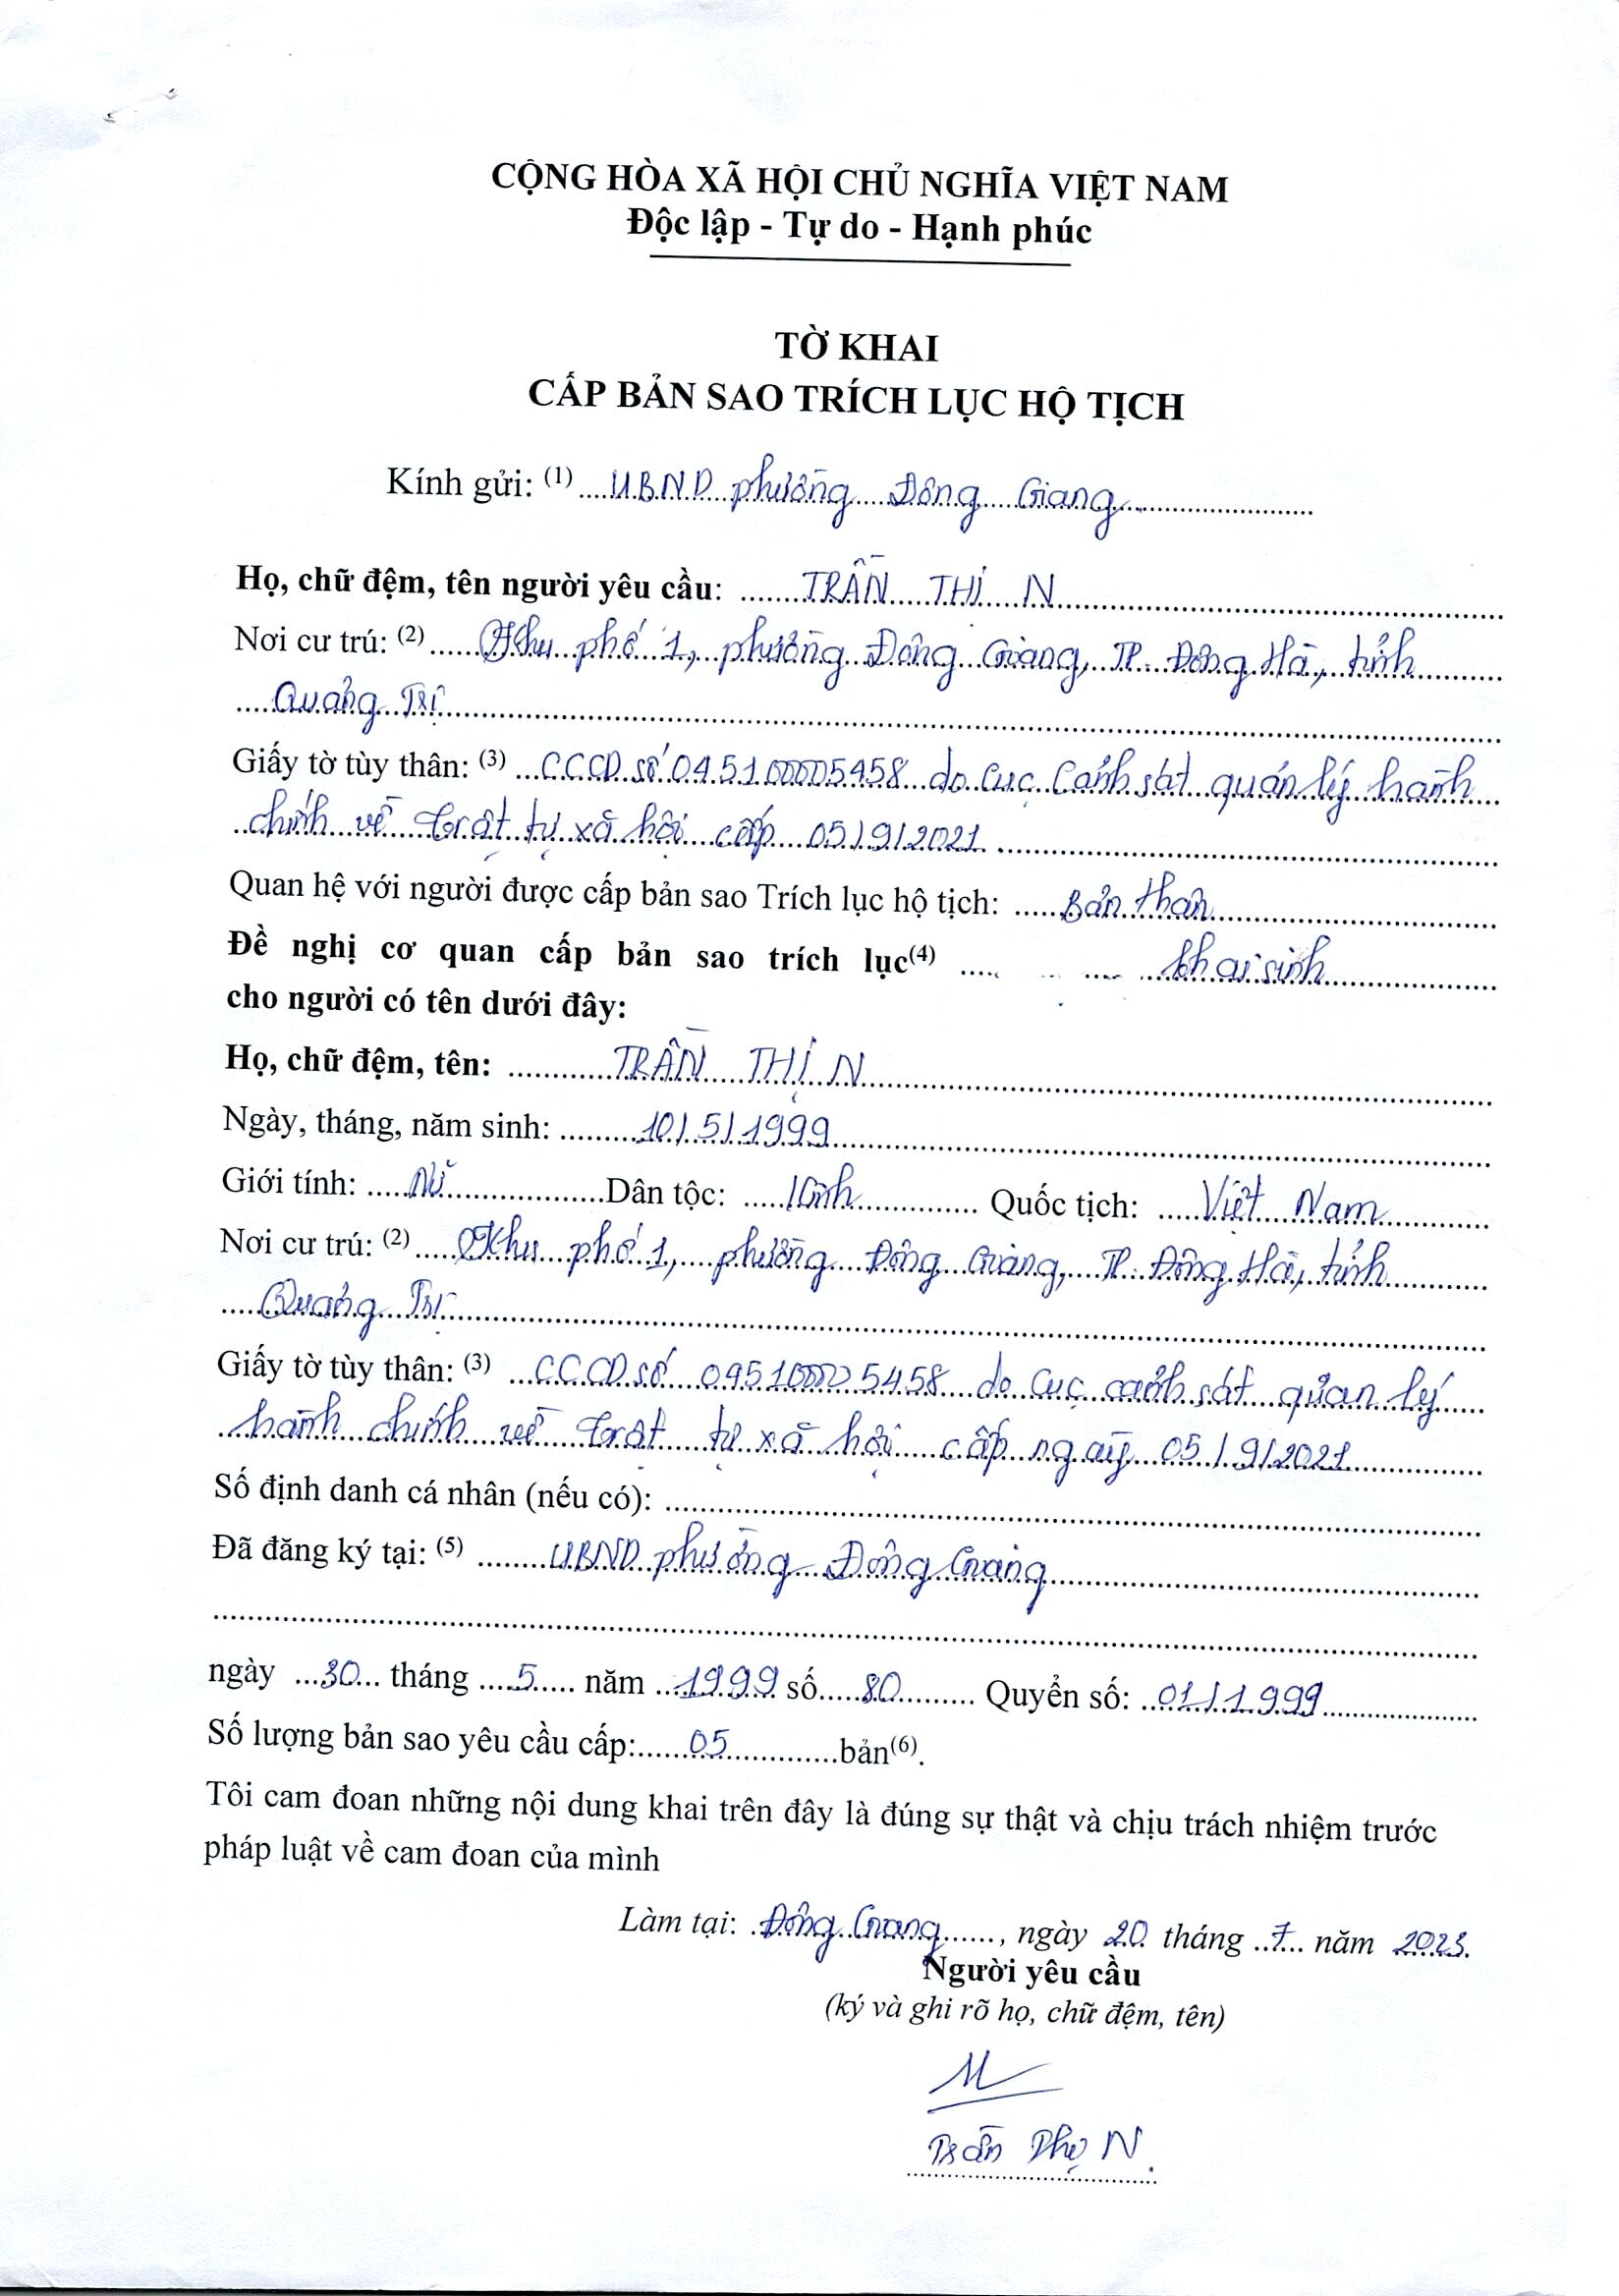 CỘNG HÒA XÃ HỘI CHỦ NGHĨA VIỆT NAM
Độc lập - Tự do - Hạnh phúc
TỜ KHAI
CẤP BẢN SAO TRÍCH LỤC HỘ TỊCH
Kính gửi: (1) UBND phường Đông Giang
Họ, chữ đệm, tên người yêu cầu: TRẦN THỊ N
Nơi cư trú: (2) Khu phố 1, phường Đông Giang, TP. Đông Hà, tỉnh
Quảng Trị
Giấy tờ tùy thân: (3) CCCD số do Cục Cảnh sát quản lý hành
chính về trật tự xã hội cấp 05/9/2021
Quan hệ với người được cấp bản sao Trích lục hộ tịch: Bản thân
Đề nghị cơ quan cấp bản sao trích lục(4) khai sinh
cho người có tên dưới đây:
Họ, chữ đệm, tên: TRẦN THỊ N
Ngày, tháng, năm sinh: 10/5/1999
Giới tính: Nữ Dân tộc: Kinh Quốc tịch: Việt Nam
Nơi cư trú: (2) Khu phố 1, phường Đông Giang, TP. Đông Hà, tỉnh
Quảng Trị
Giấy tờ tùy thân: (3) CCCD số do Cục cảnh sát quản lý
hành chính về trật tự xã hội cấp ngày 05/9/2021
Số định danh cá nhân (nếu có):
Đã đăng ký tại: (5) UBND phường Đông Giang
ngày 30 tháng 5 năm 1999 số 80 Quyển số: 01/1999
Số lượng bản sao yêu cầu cấp: 05 bản(6).
Tôi cam đoan những nội dung khai trên đây là đúng sự thật và chịu trách nhiệm trước
pháp luật về cam đoan của mình
Làm tại: Đông Giang, ngày 20 tháng 7 năm 2023.
Người yêu cầu
(ký và ghi rõ họ, chữ đệm, tên)
Trần Thị N